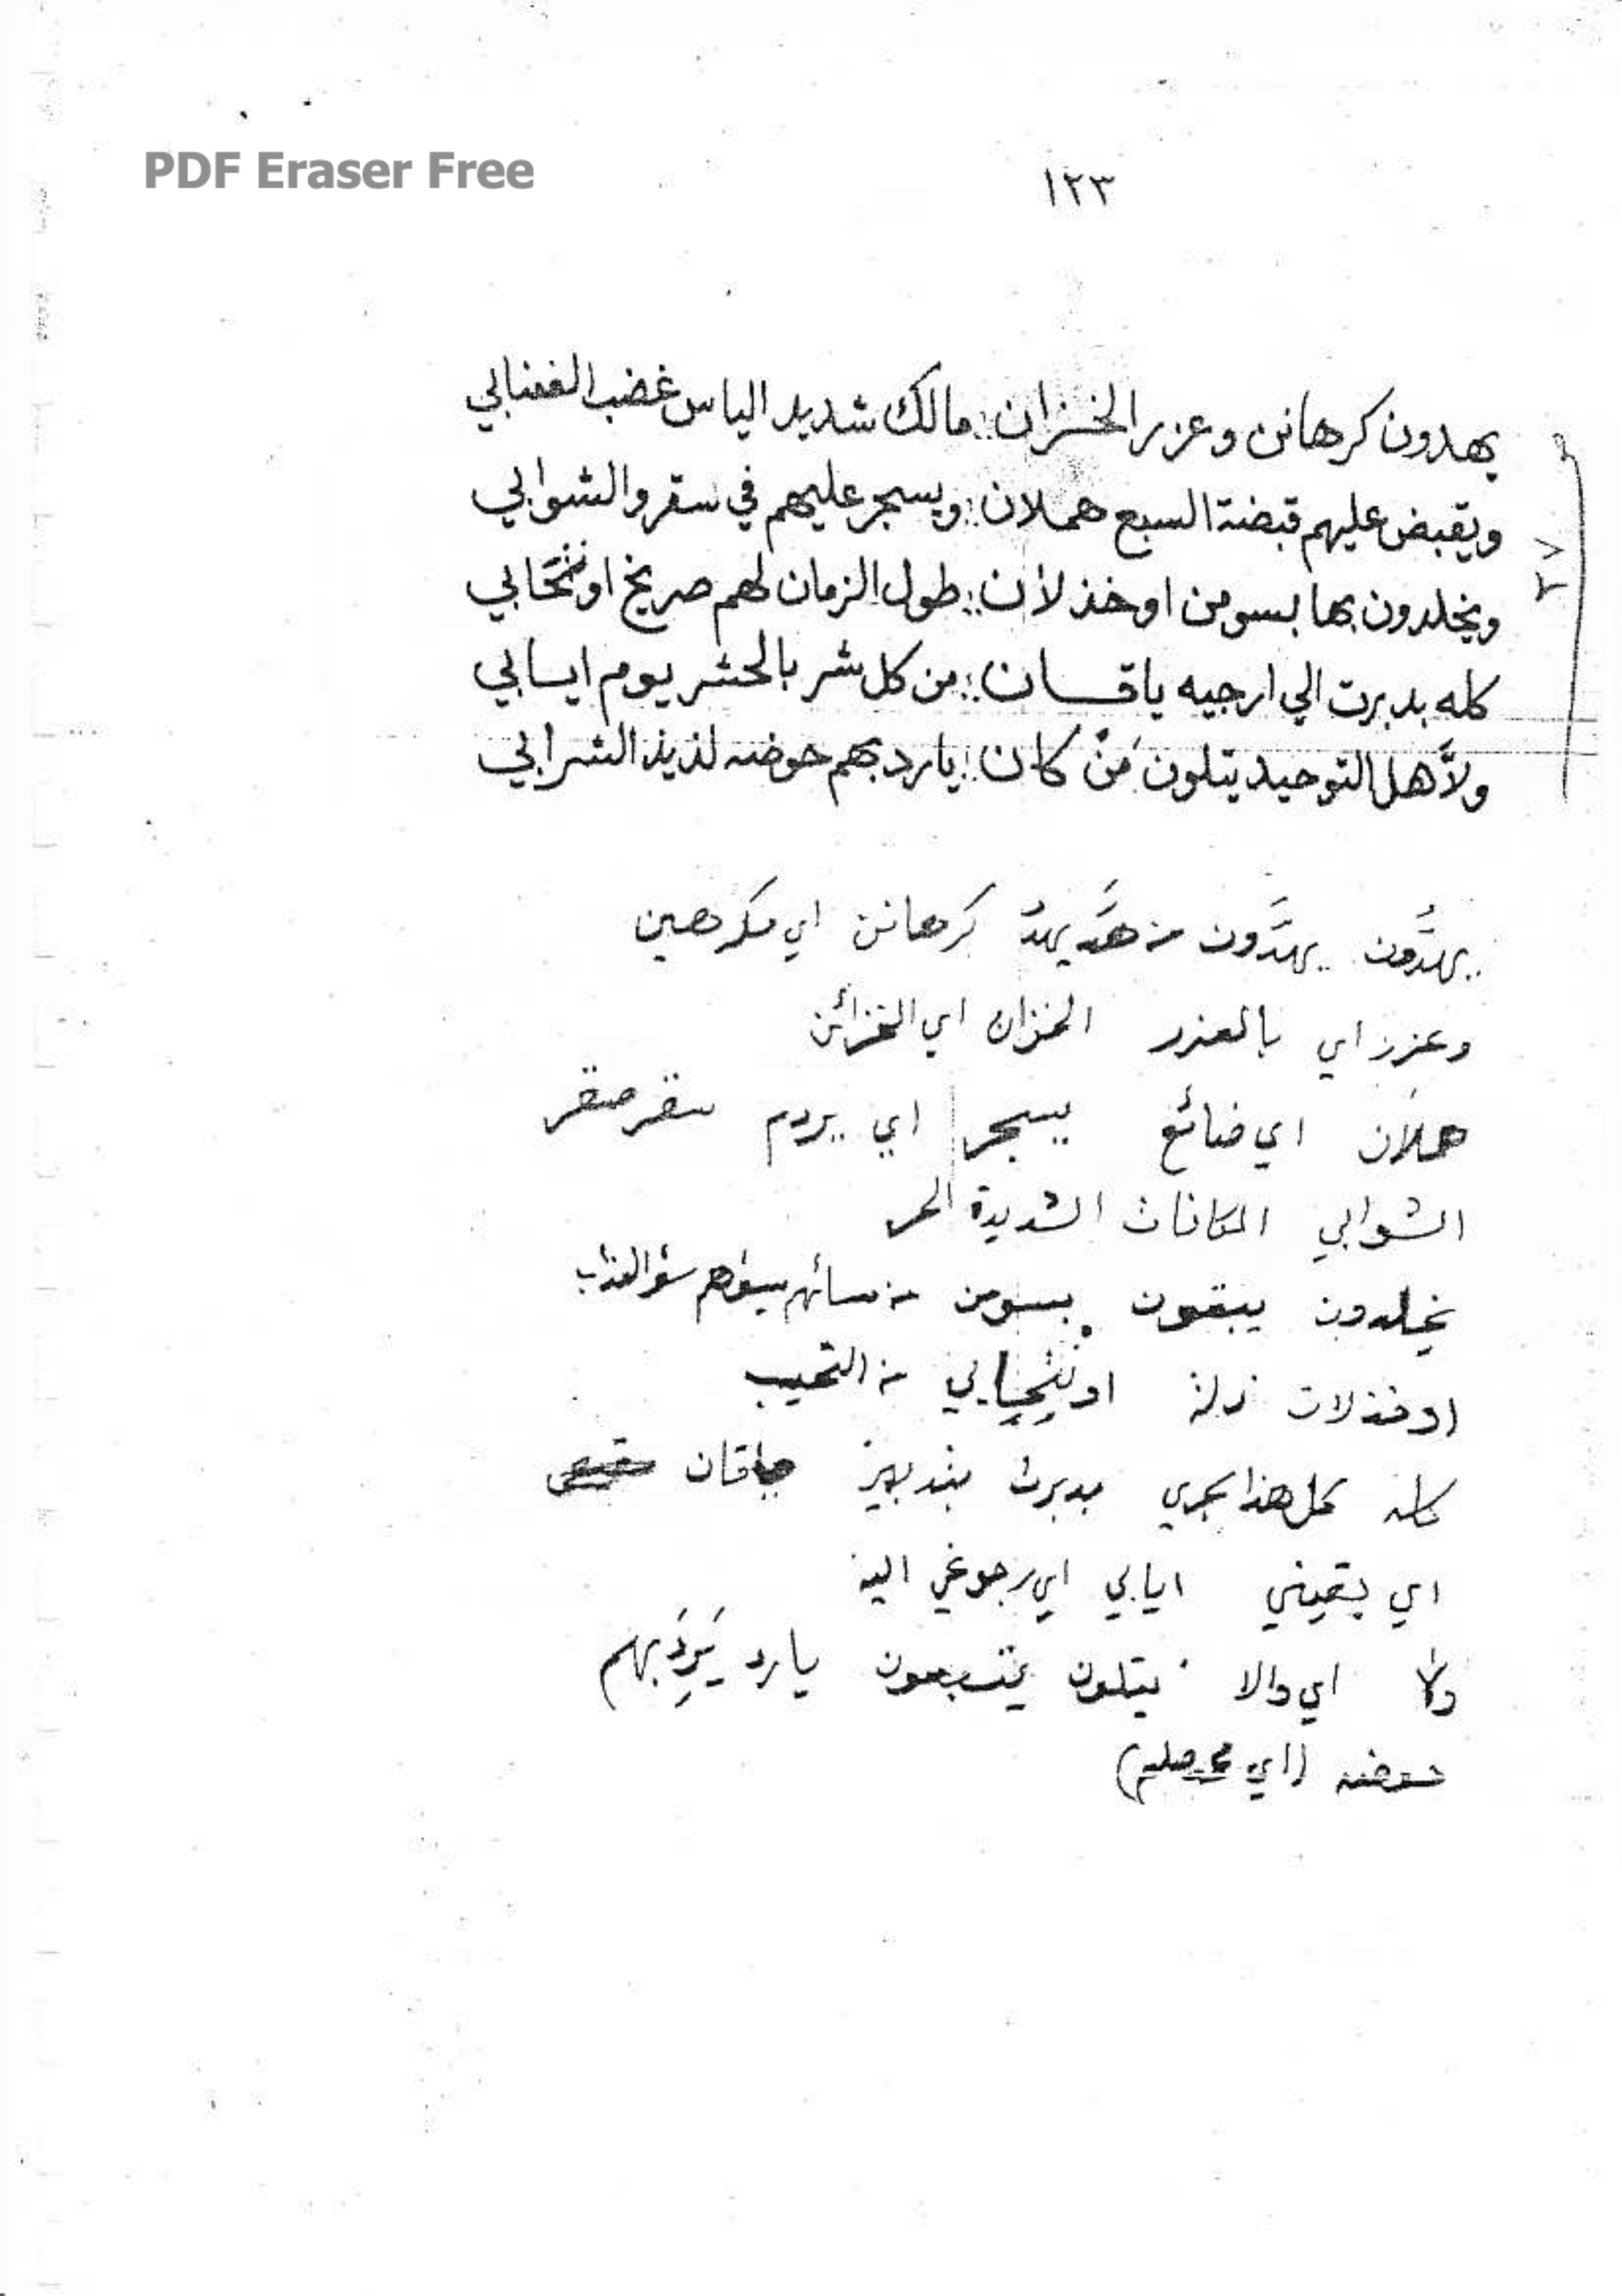 PDF Eraser Free
١٢٣
يهدون كرهانن وعزر الخزران :: مالك شديد الياس غضب الغضابي
ويقبض عليهم قبضة السبع هملان :: ويسجر عليهم في سقر والشوابي
ويخلدون بها بسومن اوخذلان :: طول الزمان لهم صريخ اونتحابي
كله بدبرت الي ارجيه ياقان :: من كل شر بالحشر يوم ايسابي
ولاَّ هل التوحيد يتلون مَنْ كان :: يارد بهم حوضه لذيذ الشرابي
يهدُّون يهدَّون من هدَّ يهدُّ كرهانن اي مكرهين
وعزر اي بالعزر الخزان اي الخزائن
هملان اي ضائع يسجر اي يردم سقر صقر
الشوابي المكانات الشديدة الحر
يخلدون يبقون بسومن من سائهم يسؤهم سؤ العذاب
اوخذلان ذلة اونتحابي من النحيب
كله كل هذا يجري بدبرت بتدبير ياقان
اي يقيني ايابي اي رجوعي اليه
ولا اي والا يتلون يتبعون يارد يَرِدُ بهم
حوضه (اي محمد صلعم)